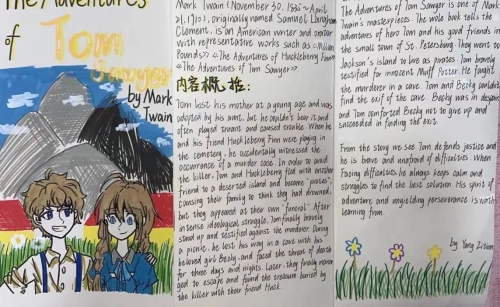 The Adventures
of Tom
Sawyer
by Mark
Twain
Mark Twain (November 30, 1835~April
21, 1910), originally named Samuel Langhorn
Clement, is an American writer and orator
with representative works such as <Million
Pounds> <The Adventures of Huckleberry Finn>
<The Adventures of Tom Sawyer>.
内容概括:
Tom lost his mother at a young age and was
adopted by his aunt, but he couldn't bear it and
often played truants and caused trouble. When he
and his friend Huckleberry Finn were playing in
the cemetery, he accidentally witnessed the
occurrence of a murder case. In order to avoid
the killer, Tom and Huckleberry fled with another
friend to a deserted island and became "pirates",
causing their family to think they had drowned,
but they appeared at their own "funeral". After
intense ideological struggle, Tom finally bravely
stood up and testified against the murderer. During
picnic, he lost his way in a cave with his
beloved girl Becky, and faced the threat of death
for three days and nights. Later, they finally manan-
ged to escape and found the treasure buried by
the killer with their friend Huck.
The Adventures of Tom Sawyer is one of Mark
Twain's masterpieces. The whole book tells the
adventures of hero Tom and his good friends in
the small town of St. Petersburg. They went to
Jackson's island to live as pirates. Tom bravely
testified for innocent Muff Potter. He fought
the murderer in a cave. Tom and Becky couldn't
find the exit of the cave. Becky was in despair
and Tom comforted Becky not to give up and
succeeded in finding the exit.
From the story we see Tom defends justice and
he is brave and unafraid of difficulties. When
facing difficulties, he always keeps calm and
struggles to find the best solution. His spirit of
adventure and unyielding perseverance is worth
learning from.
by Yang